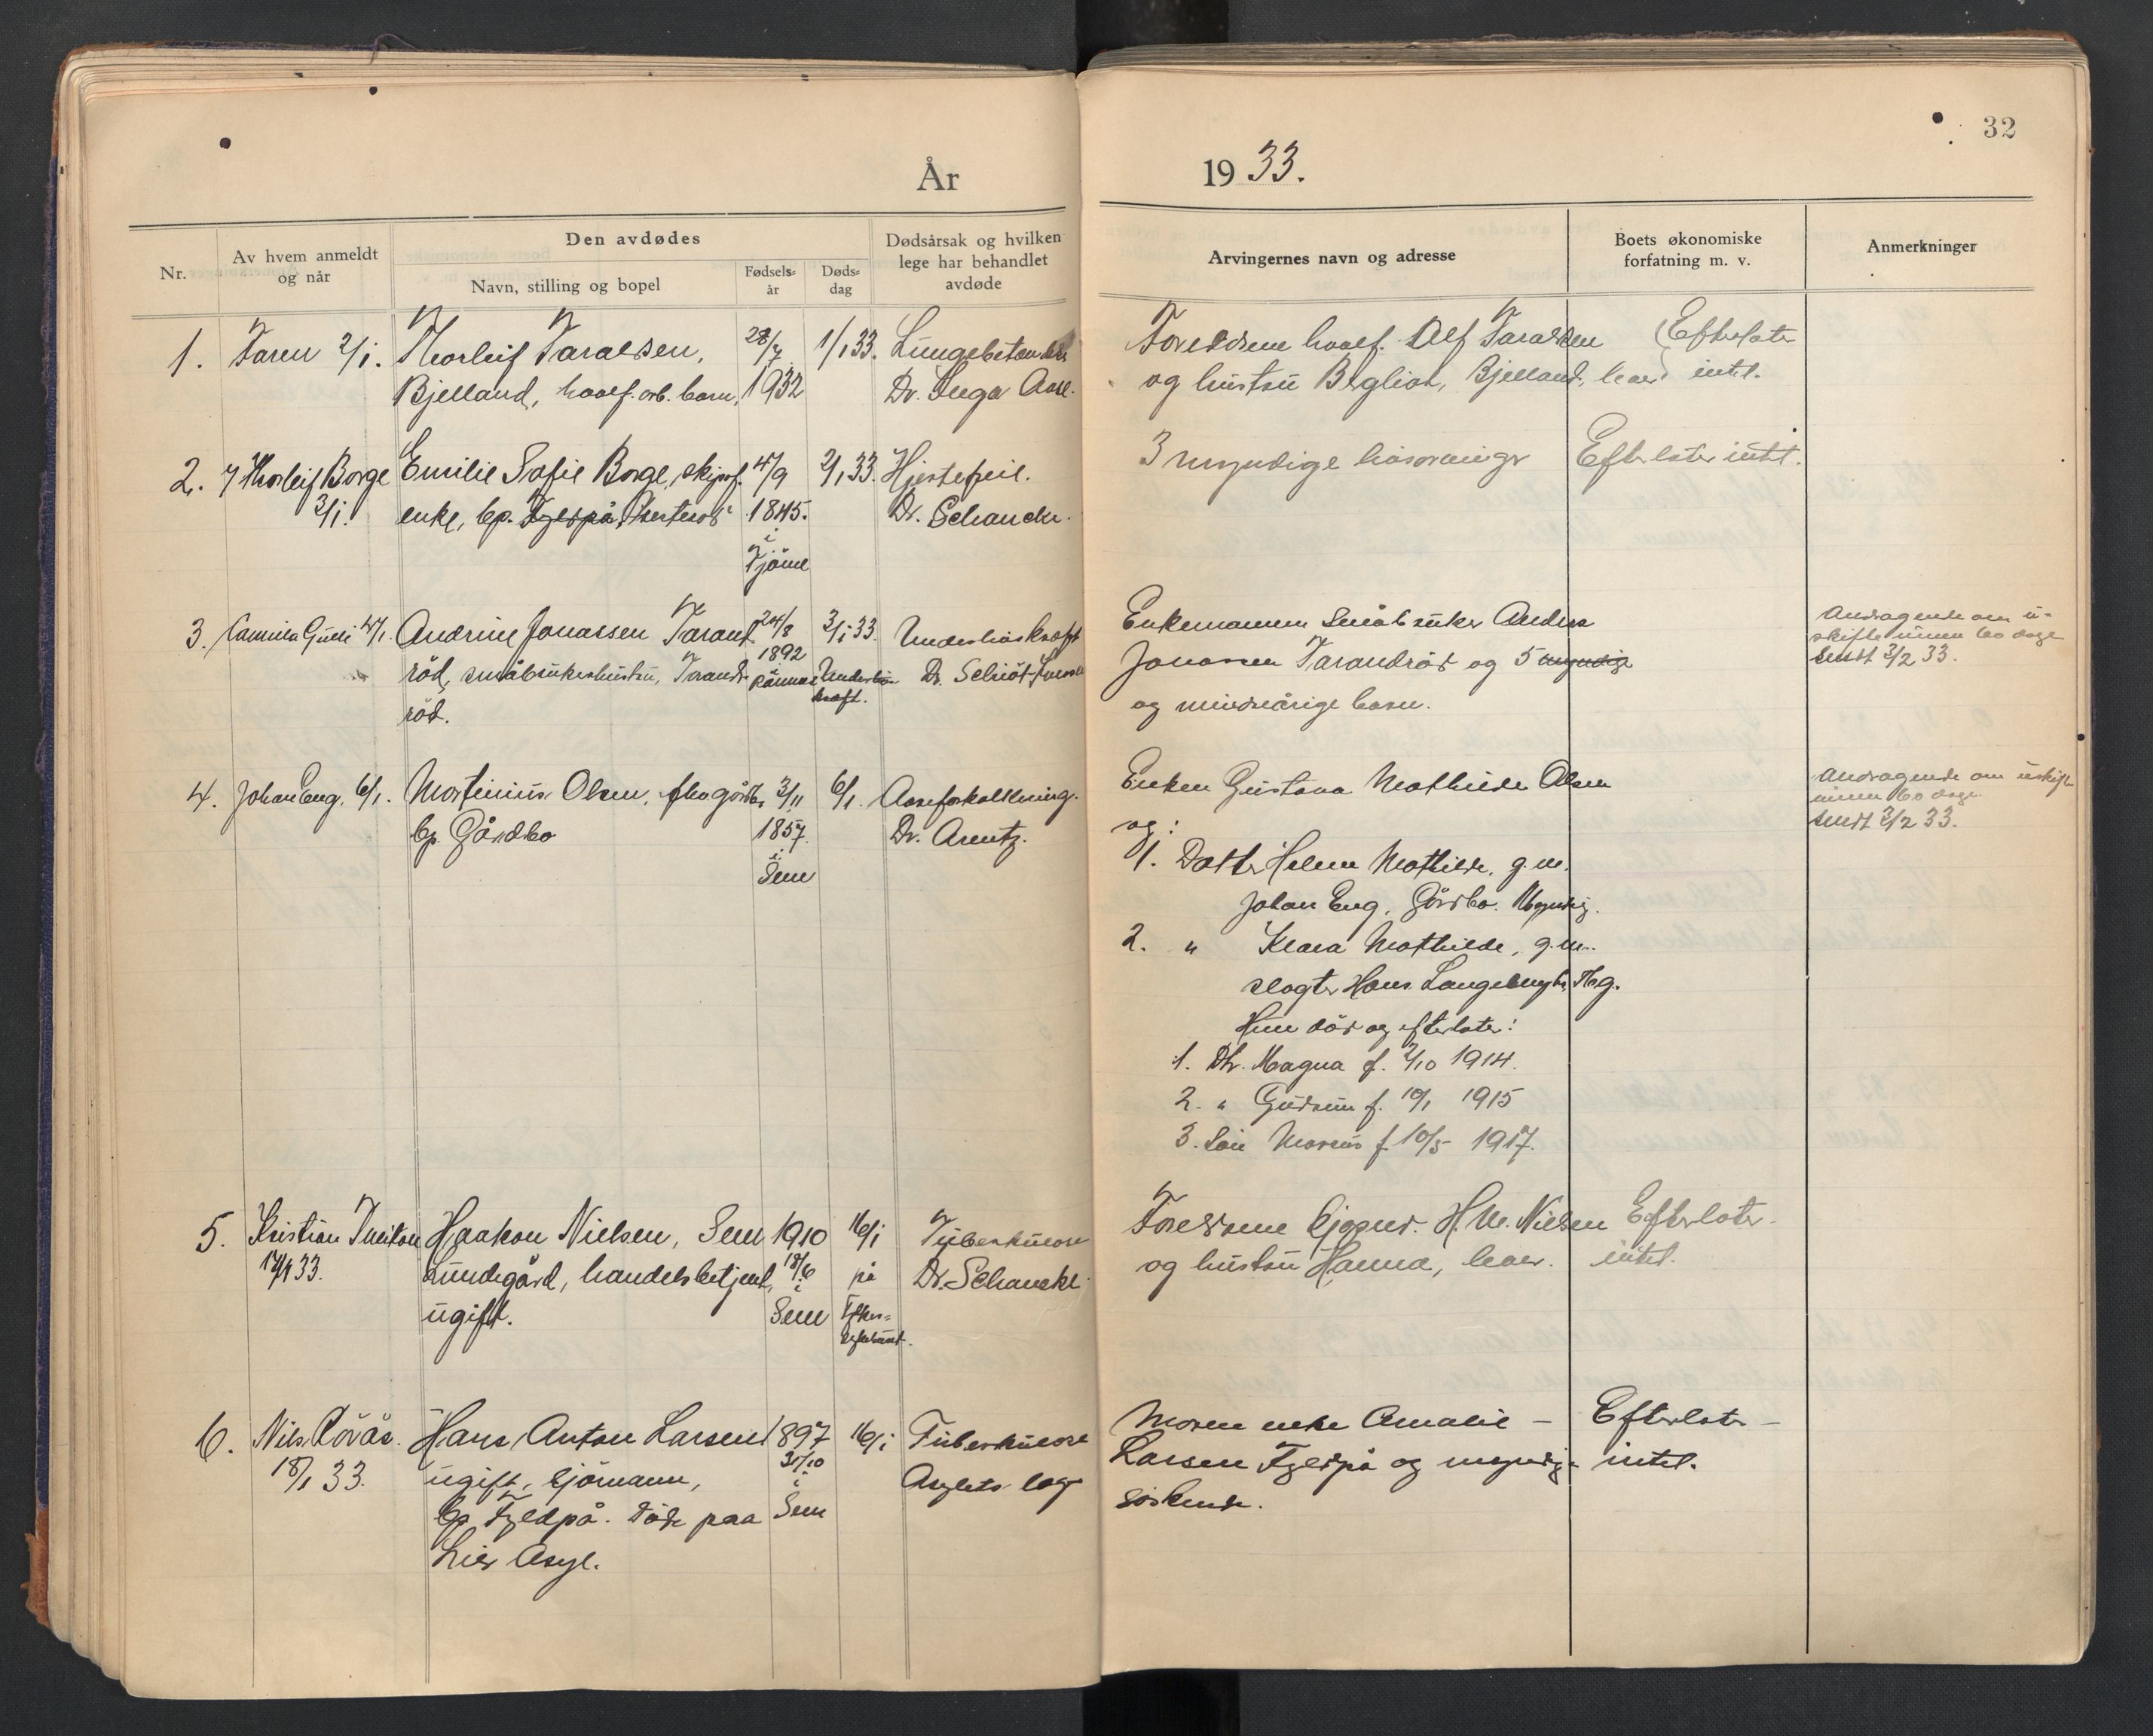 32
År 1933.
Nr.
Av hvem anmeldt og når
Den avdødes
Navn, stilling og bopel
Fødsels=år
Døds=dag
Dødsårsak og hvilken lege har behandlet avdøde
Arvingernes navn og adresse
Boets økonomiske forfatning m. v.
Anmerkninger
1. Faren 2/1. Thorleif Taraldsen, 28/7 1/1 33. Lungebetendelse
Bjelland, hvalf. arb. barn, 1932 Dr. Inga Aasl.
Foreldrene hvalf. Alf Taraldsen Efterlater
og hustru Bergliot, Bjelland, lever intet.
2. Thorleif Borge Emilie Sofie Borge, skipsf. 4/9 2/1 33. Hjertefeil.
3/1. enke, bp. Fyldpå 1845. Dr. Schancke.
i
Tjöme
3 myndige livsarvinger Efterlater intet.
3. 4/1. Andrine Jonassen Tarand- 24/8 3/1 33. Underlivskræft
röd, småbrukerhustru, Tarand- 1892 Underlivs- Dr.
röd. kræft.
Enkemannen Småbruker Andreas
Jonassen Tarandröd og 5 myndige
og mindreårige barn.
Andragende om u-
skifte innen 60 dage
sendt 3/2 33.
4. Johan Eng. 6/1. Martinius Olsen, fhv. gårdbr. 3/11 6/1. Aareforkalkning.
bp. Gårdbo 1857. Dr. Arentz.
i
Sem
Enken Gustava Mathilde Olsen
og:
1. Datter Helene Mathilde, g.m.
Johan Eng, Gårdbo. Myndig.
2. " Klara Mathilde, g.m.
slagter Hans Tbg.
Hun död og efterlater:
1. Dtr. Magna f. 2/10 1914.
2. " Gudrun f. 19/1 1915
3. Sön Marius f. 10/5 1917.
Andragende om uskifte
innen 60 dage
sendt 3/2 33.
5. Kristian Haakon Nielsen, Sem 1910 16/1 Tuberkulose
17/1 33. Lundegård, handelsbetjent, 18/6 på Dr. Schancke
ugift. i
Sem
Foreldrene H. M. Nielsen Efterlater
og hustru Hanna, lever. intet.
6. Nils Röväs. Hans Anton Larsen 1897 16/1 Tuberkulose
18/1 33. ugift, sjömann, 31/10 Asylets læge
bp. Fyldpå. Döde paa i
Lier Asyl. Sem
Moren enke Amalie – Efterlater –
Larsen Fyldpå og myndige intet.
söskende.